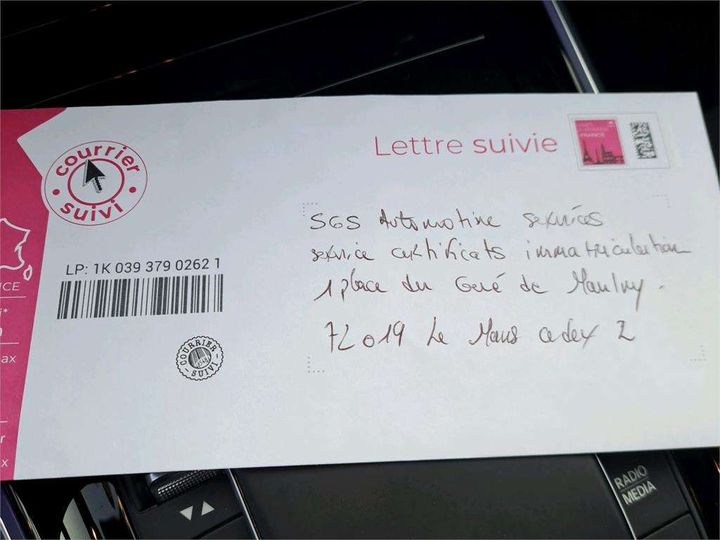 Lettre suivie
courrier
suivi
LP: 1K 039 379 0262 1
SGS Automotive services
service certificats immatriculation
1 place du Gué de Maulny.
72019 Le Mans cedex 2
COURRIER
SUIVI
RADIO
MEDIA